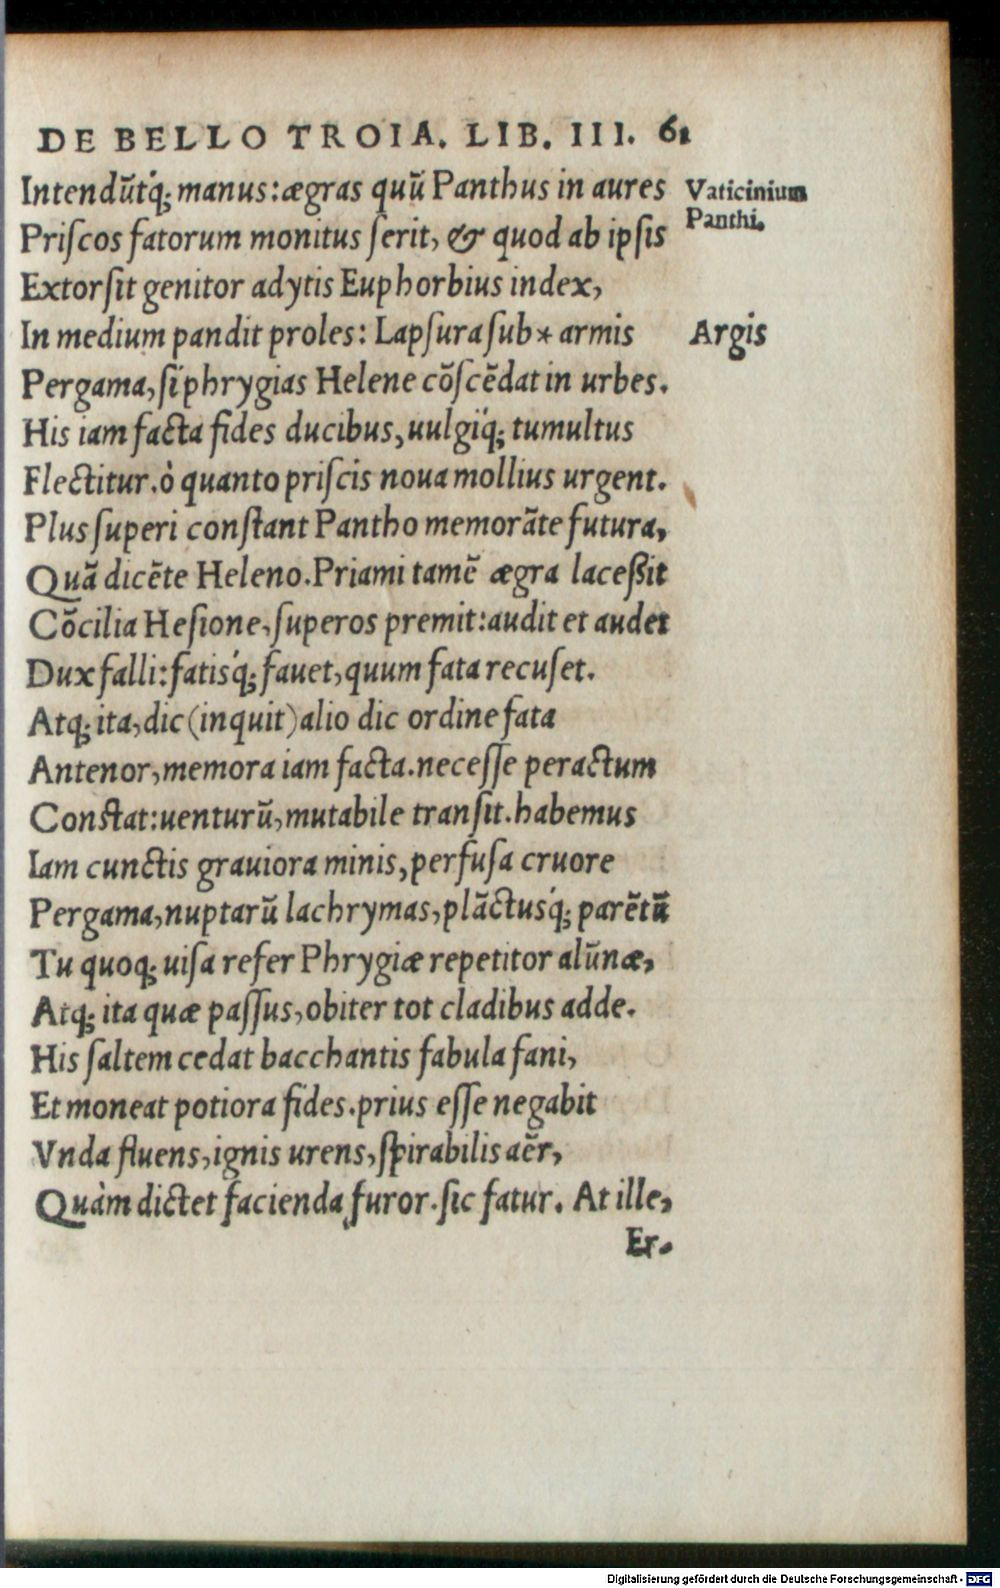 DE BELLO TROIA. LIB. III. 61
Intendūtq́; manus: ægras quū Panthus in aures
Vaticinium
Panthi.
Priſcos fatorum monitus ſerit, & quod ab ipſis
Extorſit genitor adytis Euphorbius index,
In medium pandit proles: Lapſura ſub * armis
Argis
Pergama, ſi phrygias Helene cōſcēdat in urbes.
His iam facta fides ducibus, uulgiq́; tumultus
Flectitur. ò quanto priſcis noua mollius urgent.
Plus ſuperi conſtant Pantho memorāte futura,
Quā dicēte Heleno. Priami tamē ægra laceßit
Cōcilia Heſione, ſuperos premit: audit et audet
Dux falli: fatisq́; fauet, quum fata recuſet.
Atq; ita, dic (inquit) alio dic ordine fata
Antenor, memora iam facta. neceſſe peractum
Conſtat: uenturū, mutabile tranſit. habemus
Iam cunctis grauiora minis, perfuſa cruore
Pergama, nuptarū lachrymas, plāctusq́; parētū
Tu quoq; uiſa refer Phrygiæ repetitor alūnæ,
Atq; ita quæ paſſus, obiter tot cladibus adde.
His ſaltem cedat bacchantis fabula fani,
Et moneat potiora fides. prius eſſe negabit
Vnda fluens, ignis urens, ſpirabilis aēr,
Quàm dictet facienda furor. ſic fatur. At ille,
Er-
Digitalisierung gefördert durch die Deutsche Forschungsgemeinschaft - DFG